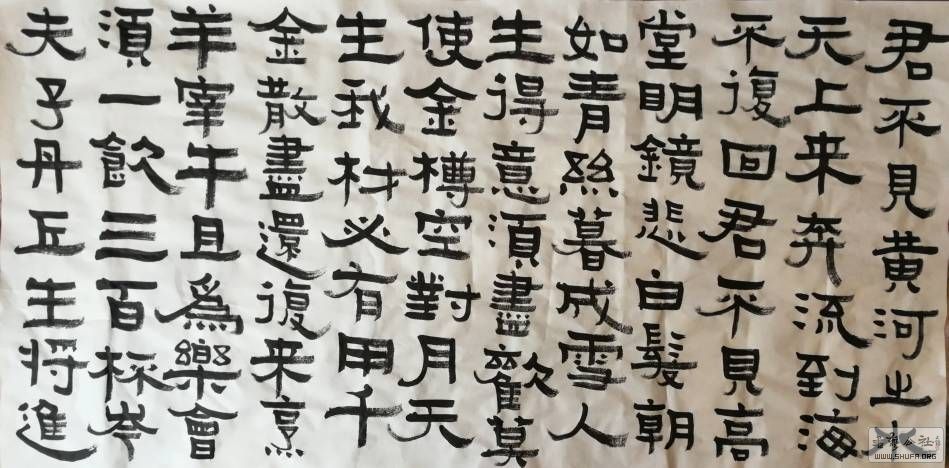 君不見黄河之水
天上来奔流到海
不復回君不見高
堂明鏡悲白髮朝
如青絲暮成雪人
生得意須盡歡莫
使金樽空對月天
生我材必有用千
金散盡還復来烹
羊宰牛且為樂會
須一飲三百杯岑
夫子丹丘生将進
书艺公社
WWW.SHUFA.ORG